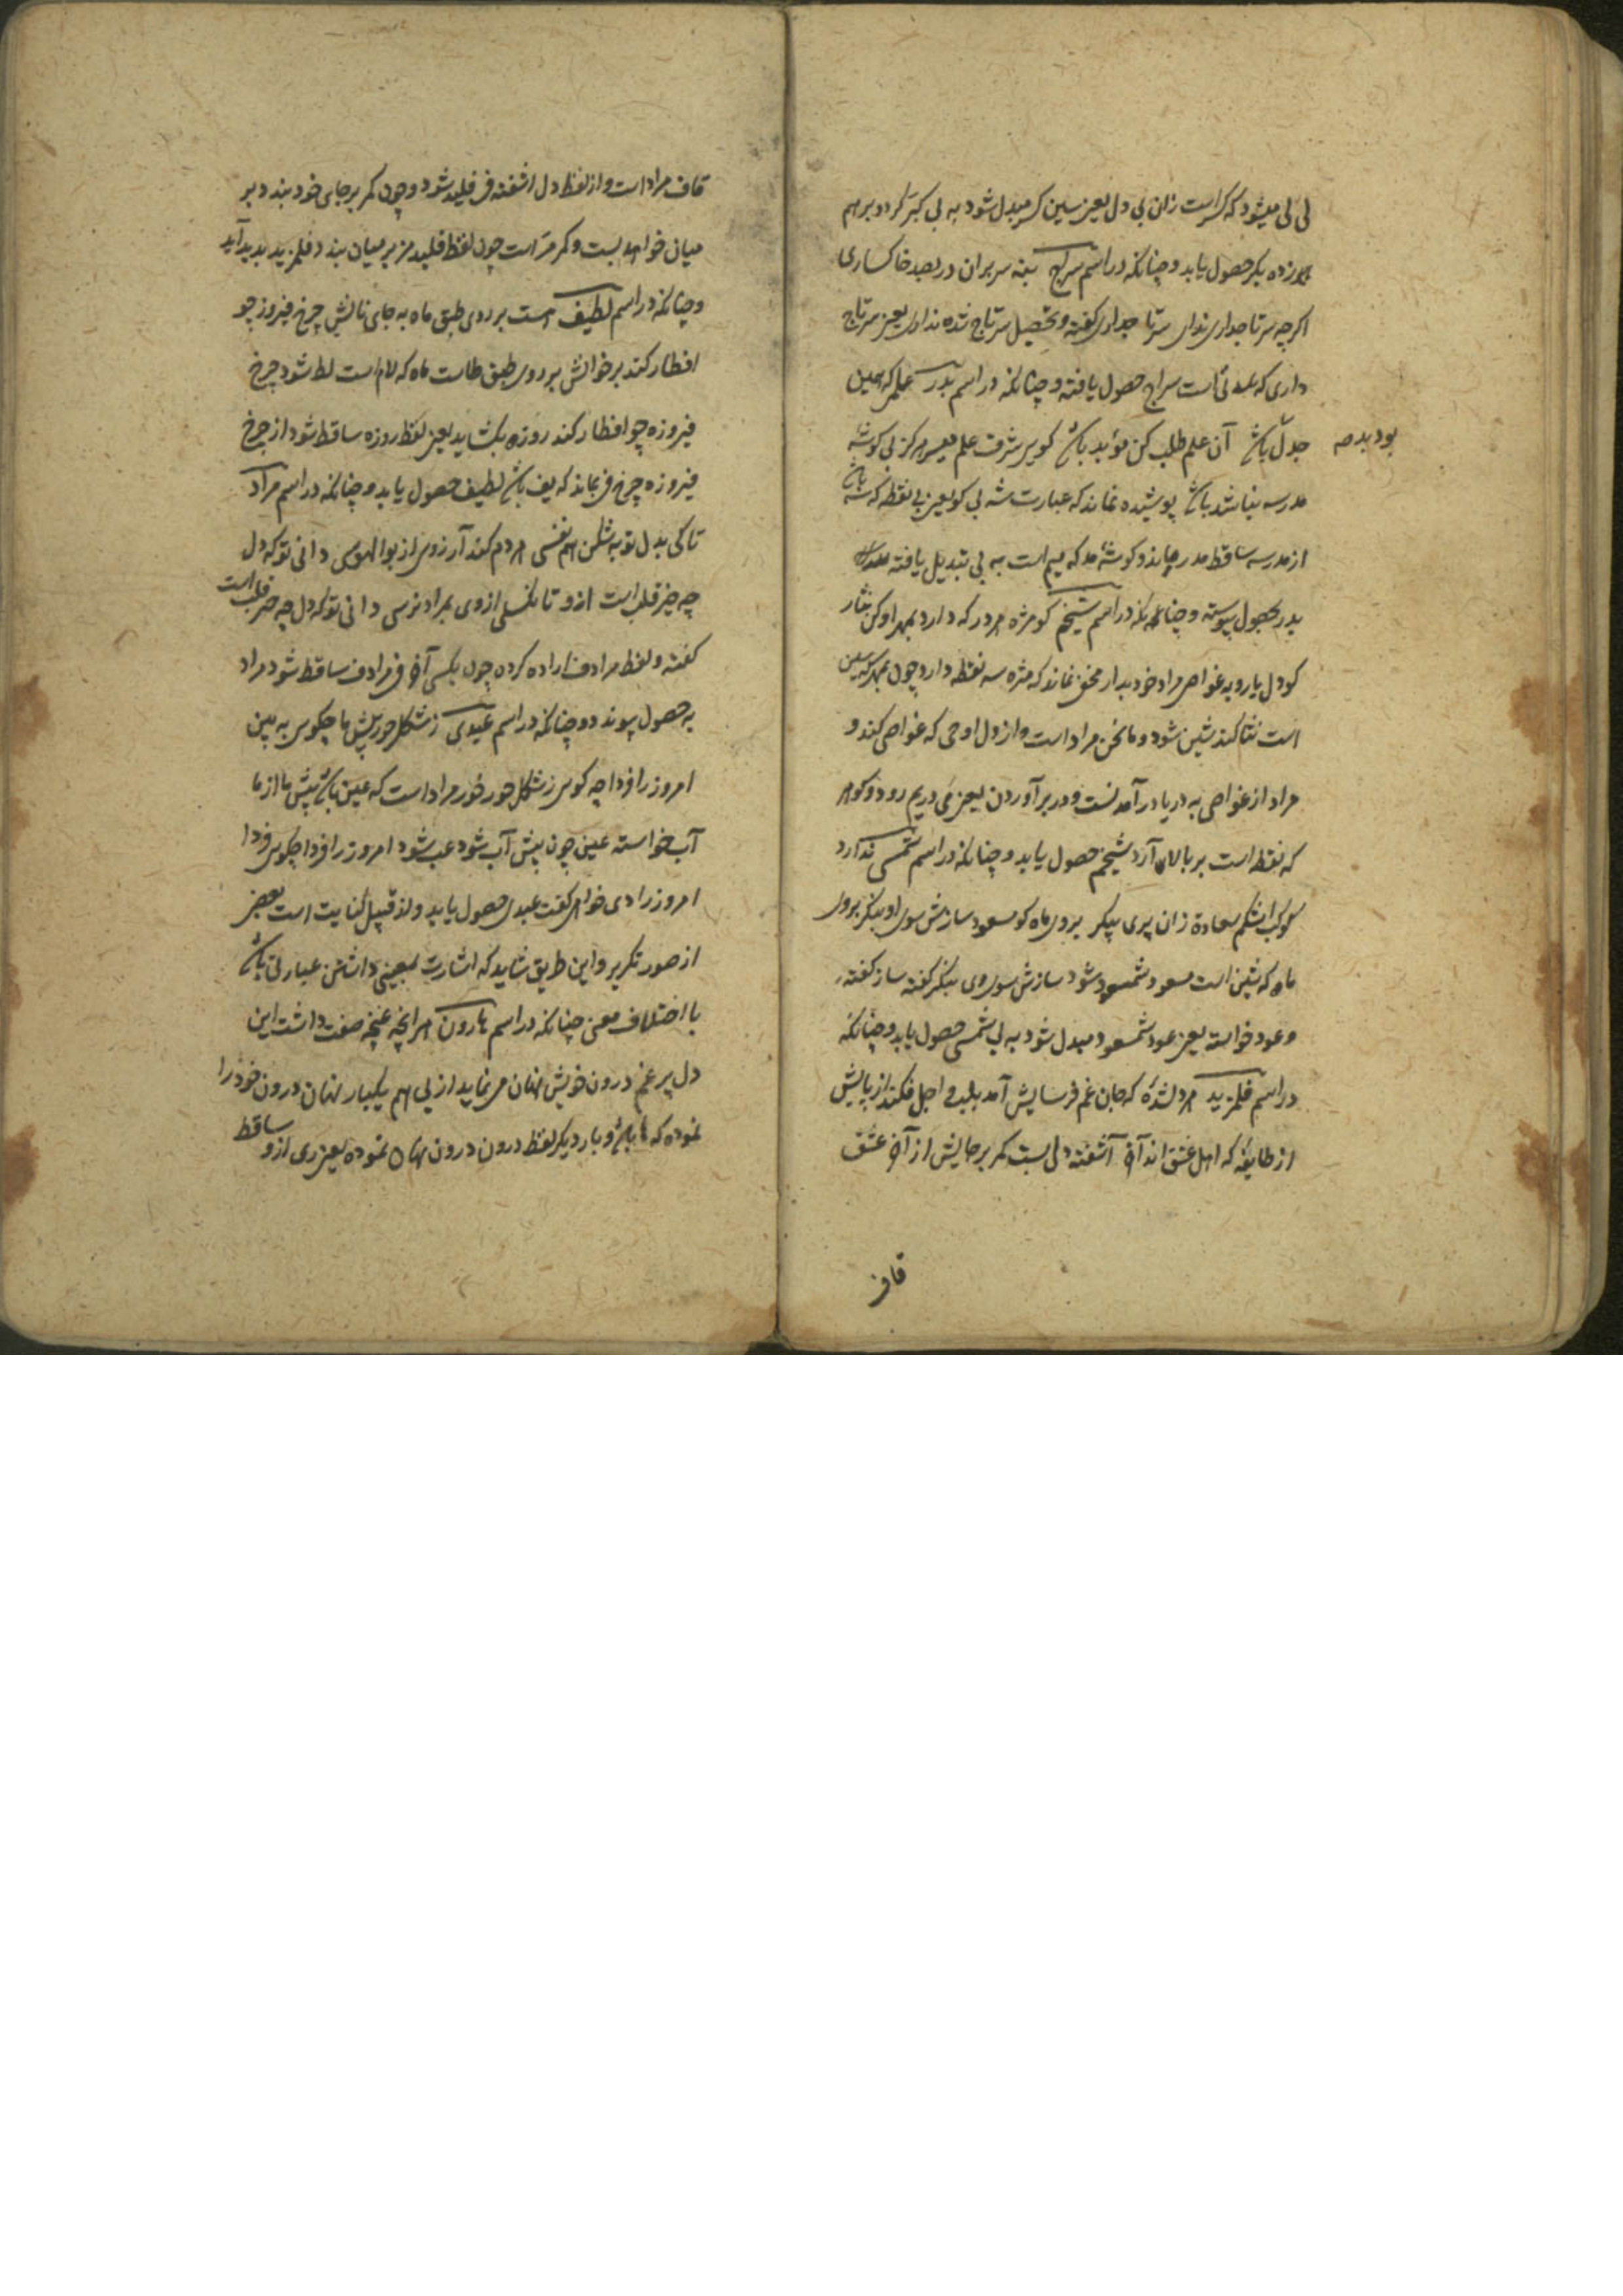 لی لی میشود که کسر است زان بی دل یعنی سین کسر مبدل شود به بی کبر کردد بر هم
زده بکر حصول یابد و چنانکه در اسم سراج بنه سر بران در بصد خاکساری
اکرچه سر تاجداری نداری سر تا جداری کفته و تحصیل سر تاج شده نداری یعنی سر تاج
داری که عدتی است سراج حصول یافته و چنانکه در اسم بدر علمی که همین
جدل باشد آن علم طلب کن مؤید باشد کو بی شرف علم میسر مرکز بی کوشه
بود بدصه
مدرسه نباشد باشد پوشیده نماند که عبارت شه بی کو یعنی بی نقطه که سه باشد
از مدرسه ساقط مدر ماند و کوشه مد که میم است به بی تبدیل یافته
بدر بحصول پیوسته و چنانکه در اسم شیخم کو مژه هر در که دارد بمهر او کن نثار
کو دل یارو به غواصی مراد خود بدار مخفی نماند که مژه سه نقطه دارد چون بمهر که سین
است نثار کند شین شود و ما نحن مراد است و از دل او حی که غواصی کند و
مراد از غواصی به دریا در آمدنست و در بر آوردن یعنی خی در یم رود و کوهر
که نقطه است بر بالا آرد شیخم حصول یابد و چنانکه در اسم شمسی ندارد
کوکب اشکم سعادة زان پری پیکر بروی ماه کو مسعود سازش سوی او بنکر بروی
ماه که شین است مسعود شمسعود شود سازش سوی وی بنکر کفته ساز کفته
و عود خواسته یعنی عود شمسعود مبدل شود به بی شمسی حصول یابد و چنانکه
در اسم قلمزید هر دلشده که جان غم فرسایش آمد بلب و اجل فکند از پایش
از طایفه که اهل عشق اند آخر آشفته دلی بست کمر بر جایش از آخر عشق
قاف
قاف مراد است و از لفظ دل اشفته فی قلید شود و چون کمر بر جای خود بندد بر
میان خواهد بست و کمر مز است چون لفظ قلید مز بر میان بندد قلمزید پدید آید
و چنانکه در اسم لطیف هست بر روی طبق ماه به جای نانش چرخ فیروزه چو
افطار کند بر خوانش بر روی طبق طاست ماه که لام است لط شود چرخ
فیروزه چو افطار کند روزه بکشاید یعنی لفظ روزه ساقط شود از چرخ
فیروزه چرخ فی بماند که یف باشد لطیف حصول یابد و چنانکه در اسم مراد
تا کی بدل تو به شکن هم نفسی هر دم کند آرزوی از بوالهوسی دانی تو که دل
چه چیز قلب است ازو تا نکسلی ازوی بمراد نرسی دانی تو که دل چه حرف قلب است
کفته و لفظ مرادف اراده کرده چون بکسی آخر فی مرادف ساقط شود مراد
به حصول پیوندد و چنانکه در اسم عبدی ز شکل خور پیش ما چکوی به بین
امروز را فردا چه کوی ز شکل خور خور مراد است که عین باشد پیش ما از ما
آب خواسته عین چون پیش آب شود عب شود امروز را فردا چکوی فردا
امروز را دی خواهی کفت عبدی حصول یابد و از قبیل کنایت است بعضی
از صور تکریر و این طریق شاید که اشارت بمعینی داشتن عبارتی باشد
با اختلاف معنی چنانکه در اسم هارون هر انچه غنچه صفت داشت این
دل پر غم درون خویش نهان می نماید از پی هم یکبار نهان درون خود را
نموده که ها باشد و بار دیکر لفظ درون درون نهان نموده یعنی دی ازو ساقط